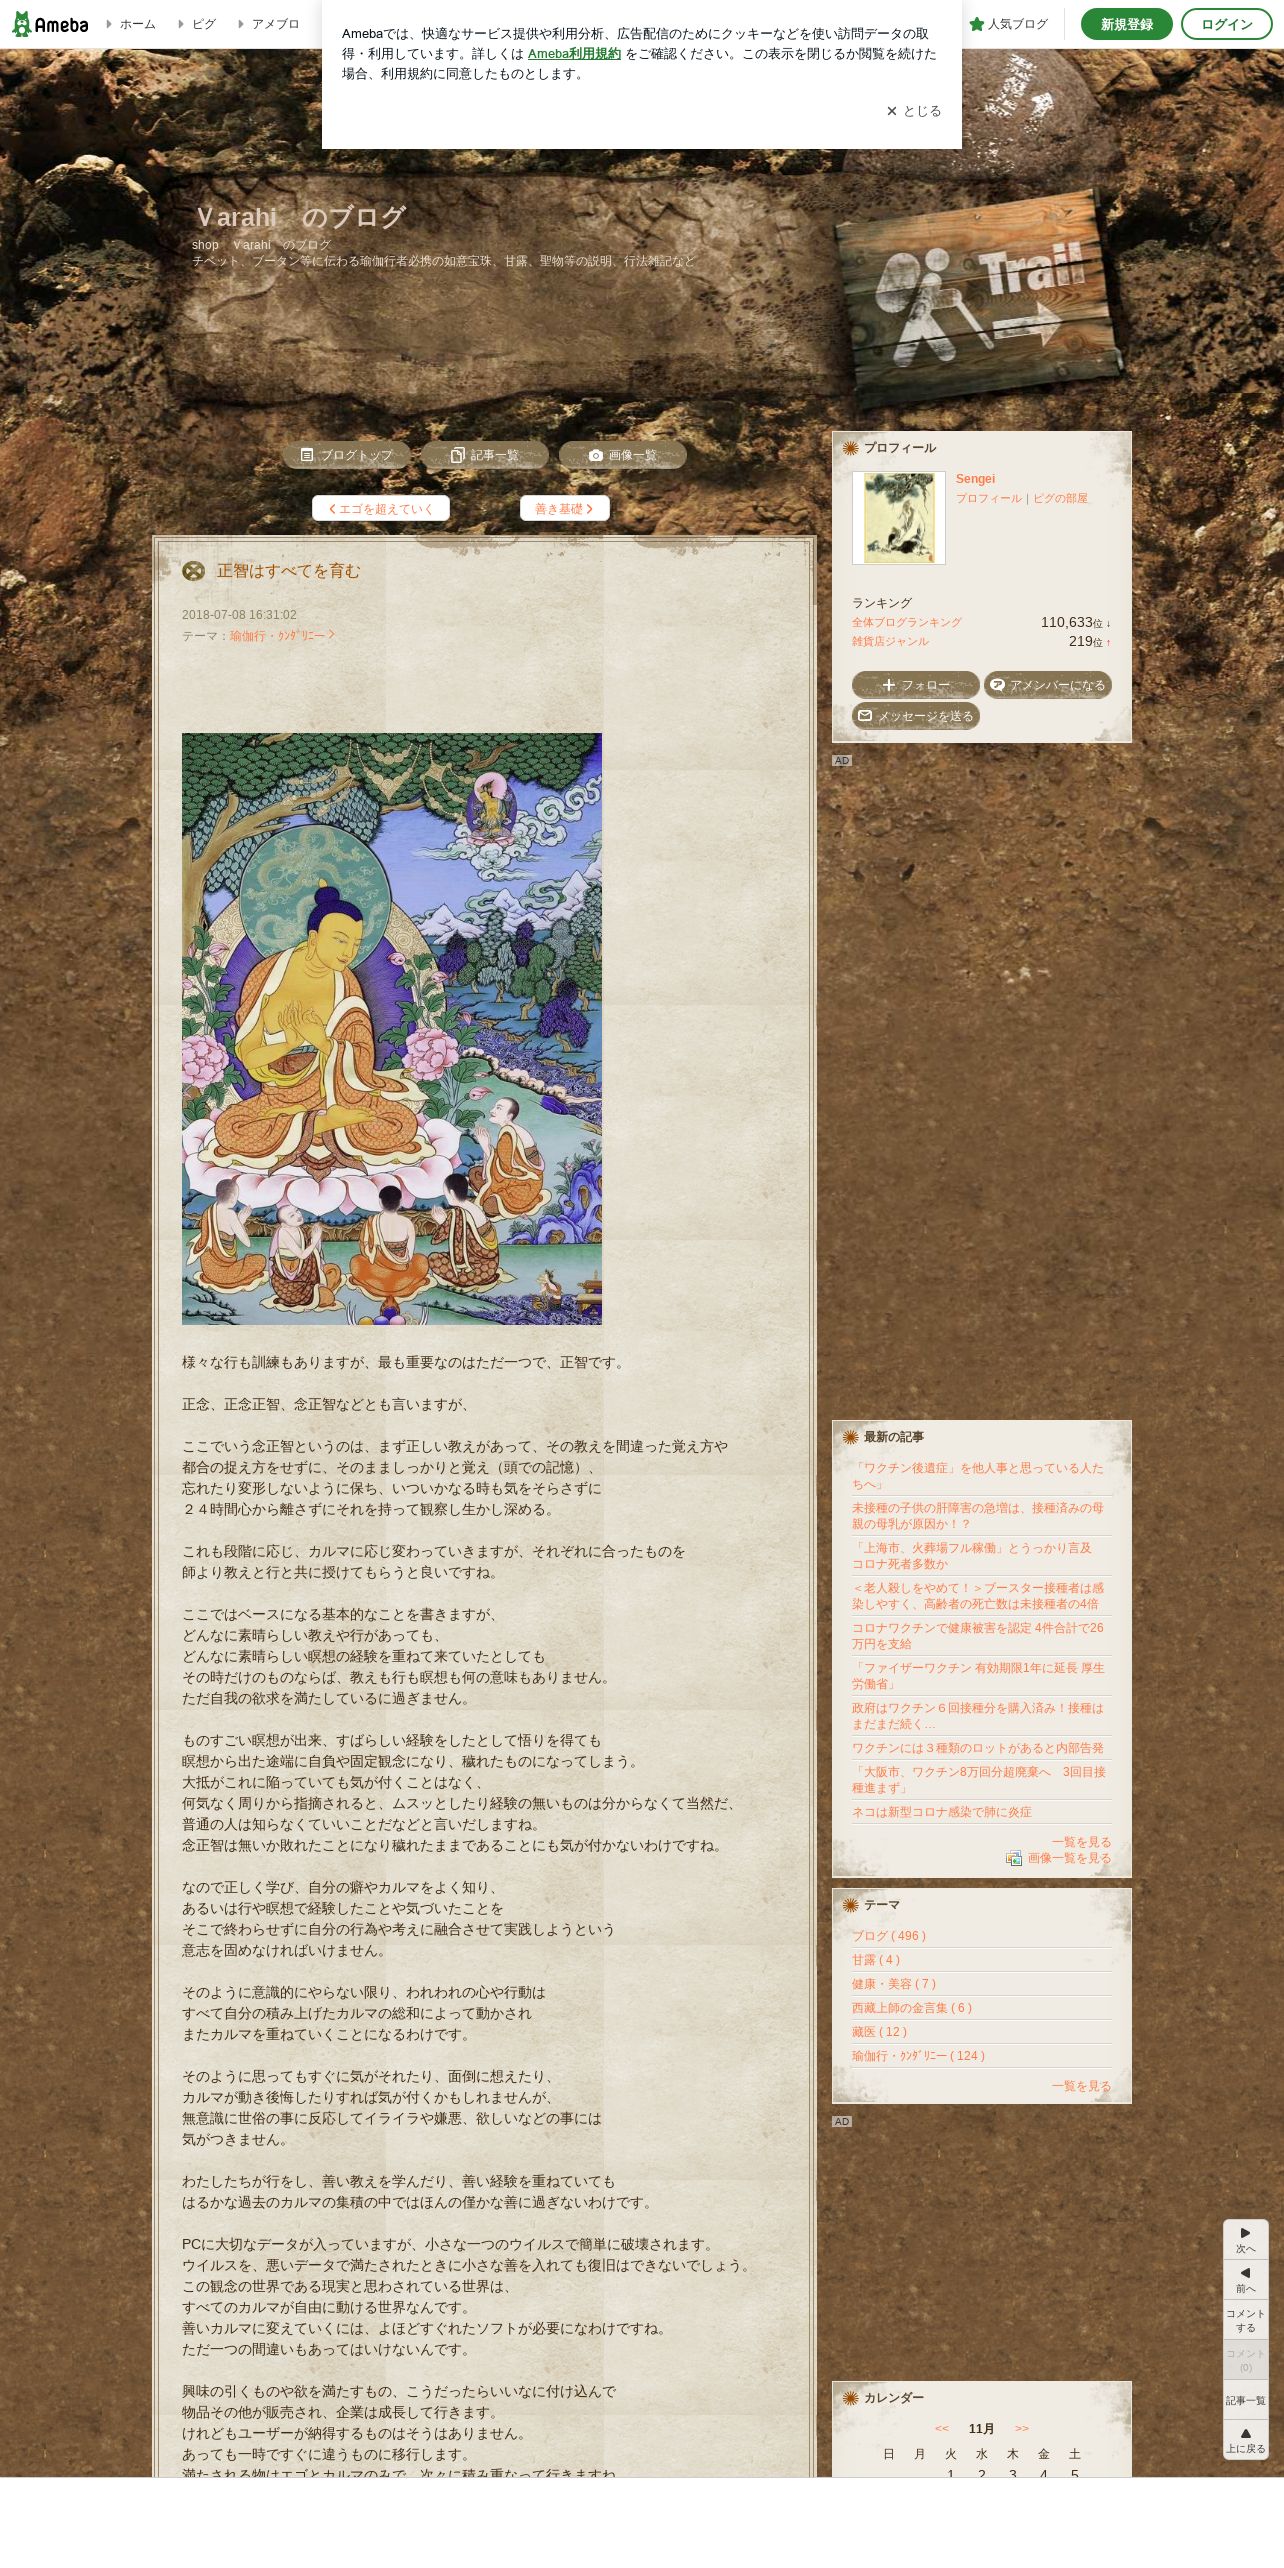 Ameba
ホーム
ピグ
アメブロ
Amebaでは、快適なサービス提供や利用分析、広告配信のためにクッキーなどを使い訪問データの取
得・利用しています。詳しくは Ameba利用規約 をご確認ください。この表示を閉じるか閲覧を続けた
場合、利用規約に同意したものとします。
とじる
人気ブログ
新規登録
ログイン
Ｖarahi　のブログ
shop　Ｖarahi　のブログ
チベット、ブータン等に伝わる瑜伽行者必携の如意宝珠、甘露、聖物等の説明、行法雑記など
Trail
ブログトップ
記事一覧
画像一覧
エゴを超えていく
善き基礎
正智はすべてを育む
2018-07-08 16:31:02
テーマ：瑜伽行・ｸﾝﾀﾞﾘﾆｰ
様々な行も訓練もありますが、最も重要なのはただ一つで、正智です。
正念、正念正智、念正智などとも言いますが、
ここでいう念正智というのは、まず正しい教えがあって、その教えを間違った覚え方や
都合の捉え方をせずに、そのまましっかりと覚え（頭での記憶）、
忘れたり変形しないように保ち、いついかなる時も気をそらさずに
２４時間心から離さずにそれを持って観察し生かし深める。
これも段階に応じ、カルマに応じ変わっていきますが、それぞれに合ったものを
師より教えと行と共に授けてもらうと良いですね。
ここではベースになる基本的なことを書きますが、
どんなに素晴らしい教えや行があっても、
どんなに素晴らしい瞑想の経験を重ねて来ていたとしても
その時だけのものならば、教えも行も瞑想も何の意味もありません。
ただ自我の欲求を満たしているに過ぎません。
ものすごい瞑想が出来、すばらしい経験をしたとして悟りを得ても
瞑想から出た途端に自負や固定観念になり、穢れたものになってしまう。
大抵がこれに陥っていても気が付くことはなく、
何気なく周りから指摘されると、ムスッとしたり経験の無いものは分からなくて当然だ、
普通の人は知らなくていいことだなどと言いだしますね。
念正智は無いか敗れたことになり穢れたままであることにも気が付かないわけですね。
なので正しく学び、自分の癖やカルマをよく知り、
あるいは行や瞑想で経験したことや気づいたことを
そこで終わらせずに自分の行為や考えに融合させて実践しようという
意志を固めなければいけません。
そのように意識的にやらない限り、われわれの心や行動は
すべて自分の積み上げたカルマの総和によって動かされ
またカルマを重ねていくことになるわけです。
そのように思ってもすぐに気がそれたり、面倒に想えたり、
カルマが動き後悔したりすれば気が付くかもしれませんが、
無意識に世俗の事に反応してイライラや嫌悪、欲しいなどの事には
気がつきません。
わたしたちが行をし、善い教えを学んだり、善い経験を重ねていても
はるかな過去のカルマの集積の中ではほんの僅かな善に過ぎないわけです。
PCに大切なデータが入っていますが、小さな一つのウイルスで簡単に破壊されます。
ウイルスを、悪いデータで満たされたときに小さな善を入れても復旧はできないでしょう。
この観念の世界である現実と思わされている世界は、
すべてのカルマが自由に動ける世界なんです。
善いカルマに変えていくには、よほどすぐれたソフトが必要になわけですね。
ただ一つの間違いもあってはいけないんです。
興味の引くものや欲を満たすもの、こうだったらいいなに付け込んで
物品その他が販売され、企業は成長して行きます。
けれどもユーザーが納得するものはそうはありません。
あっても一時ですぐに違うものに移行します。
満たされる物はエゴとカルマのみで、次々に積み重なって行きますね
プロフィール
Sengei
プロフィール｜ピグの部屋
ランキング
全体ブログランキング 110,633位 ↓
雑貨店ジャンル 219位 ↑
フォロー
アメンバーになる
メッセージを送る
AD
最新の記事
「ワクチン後遺症」を他人事と思っている人た
ちへ」
未接種の子供の肝障害の急増は、接種済みの母
親の母乳が原因か！？
「上海市、火葬場フル稼働」とうっかり言及
コロナ死者多数か
＜老人殺しをやめて！＞ブースター接種者は感
染しやすく、高齢者の死亡数は未接種者の4倍
コロナワクチンで健康被害を認定 4件合計で26
万円を支給
「ファイザーワクチン 有効期限1年に延長 厚生
労働省」
政府はワクチン６回接種分を購入済み！接種は
まだまだ続く…
ワクチンには３種類のロットがあると内部告発
「大阪市、ワクチン8万回分超廃棄へ　3回目接
種進まず」
ネコは新型コロナ感染で肺に炎症
一覧を見る
画像一覧を見る
テーマ
ブログ ( 496 )
甘露 ( 4 )
健康・美容 ( 7 )
西藏上師の金言集 ( 6 )
藏医 ( 12 )
瑜伽行・ｸﾝﾀﾞﾘﾆｰ ( 124 )
一覧を見る
AD
カレンダー
<< 11月 >>
日 月 火 水 木 金 土
1 2 3 4 5
次へ
前へ
コメント
する
コメント
(0)
記事一覧
上に戻る